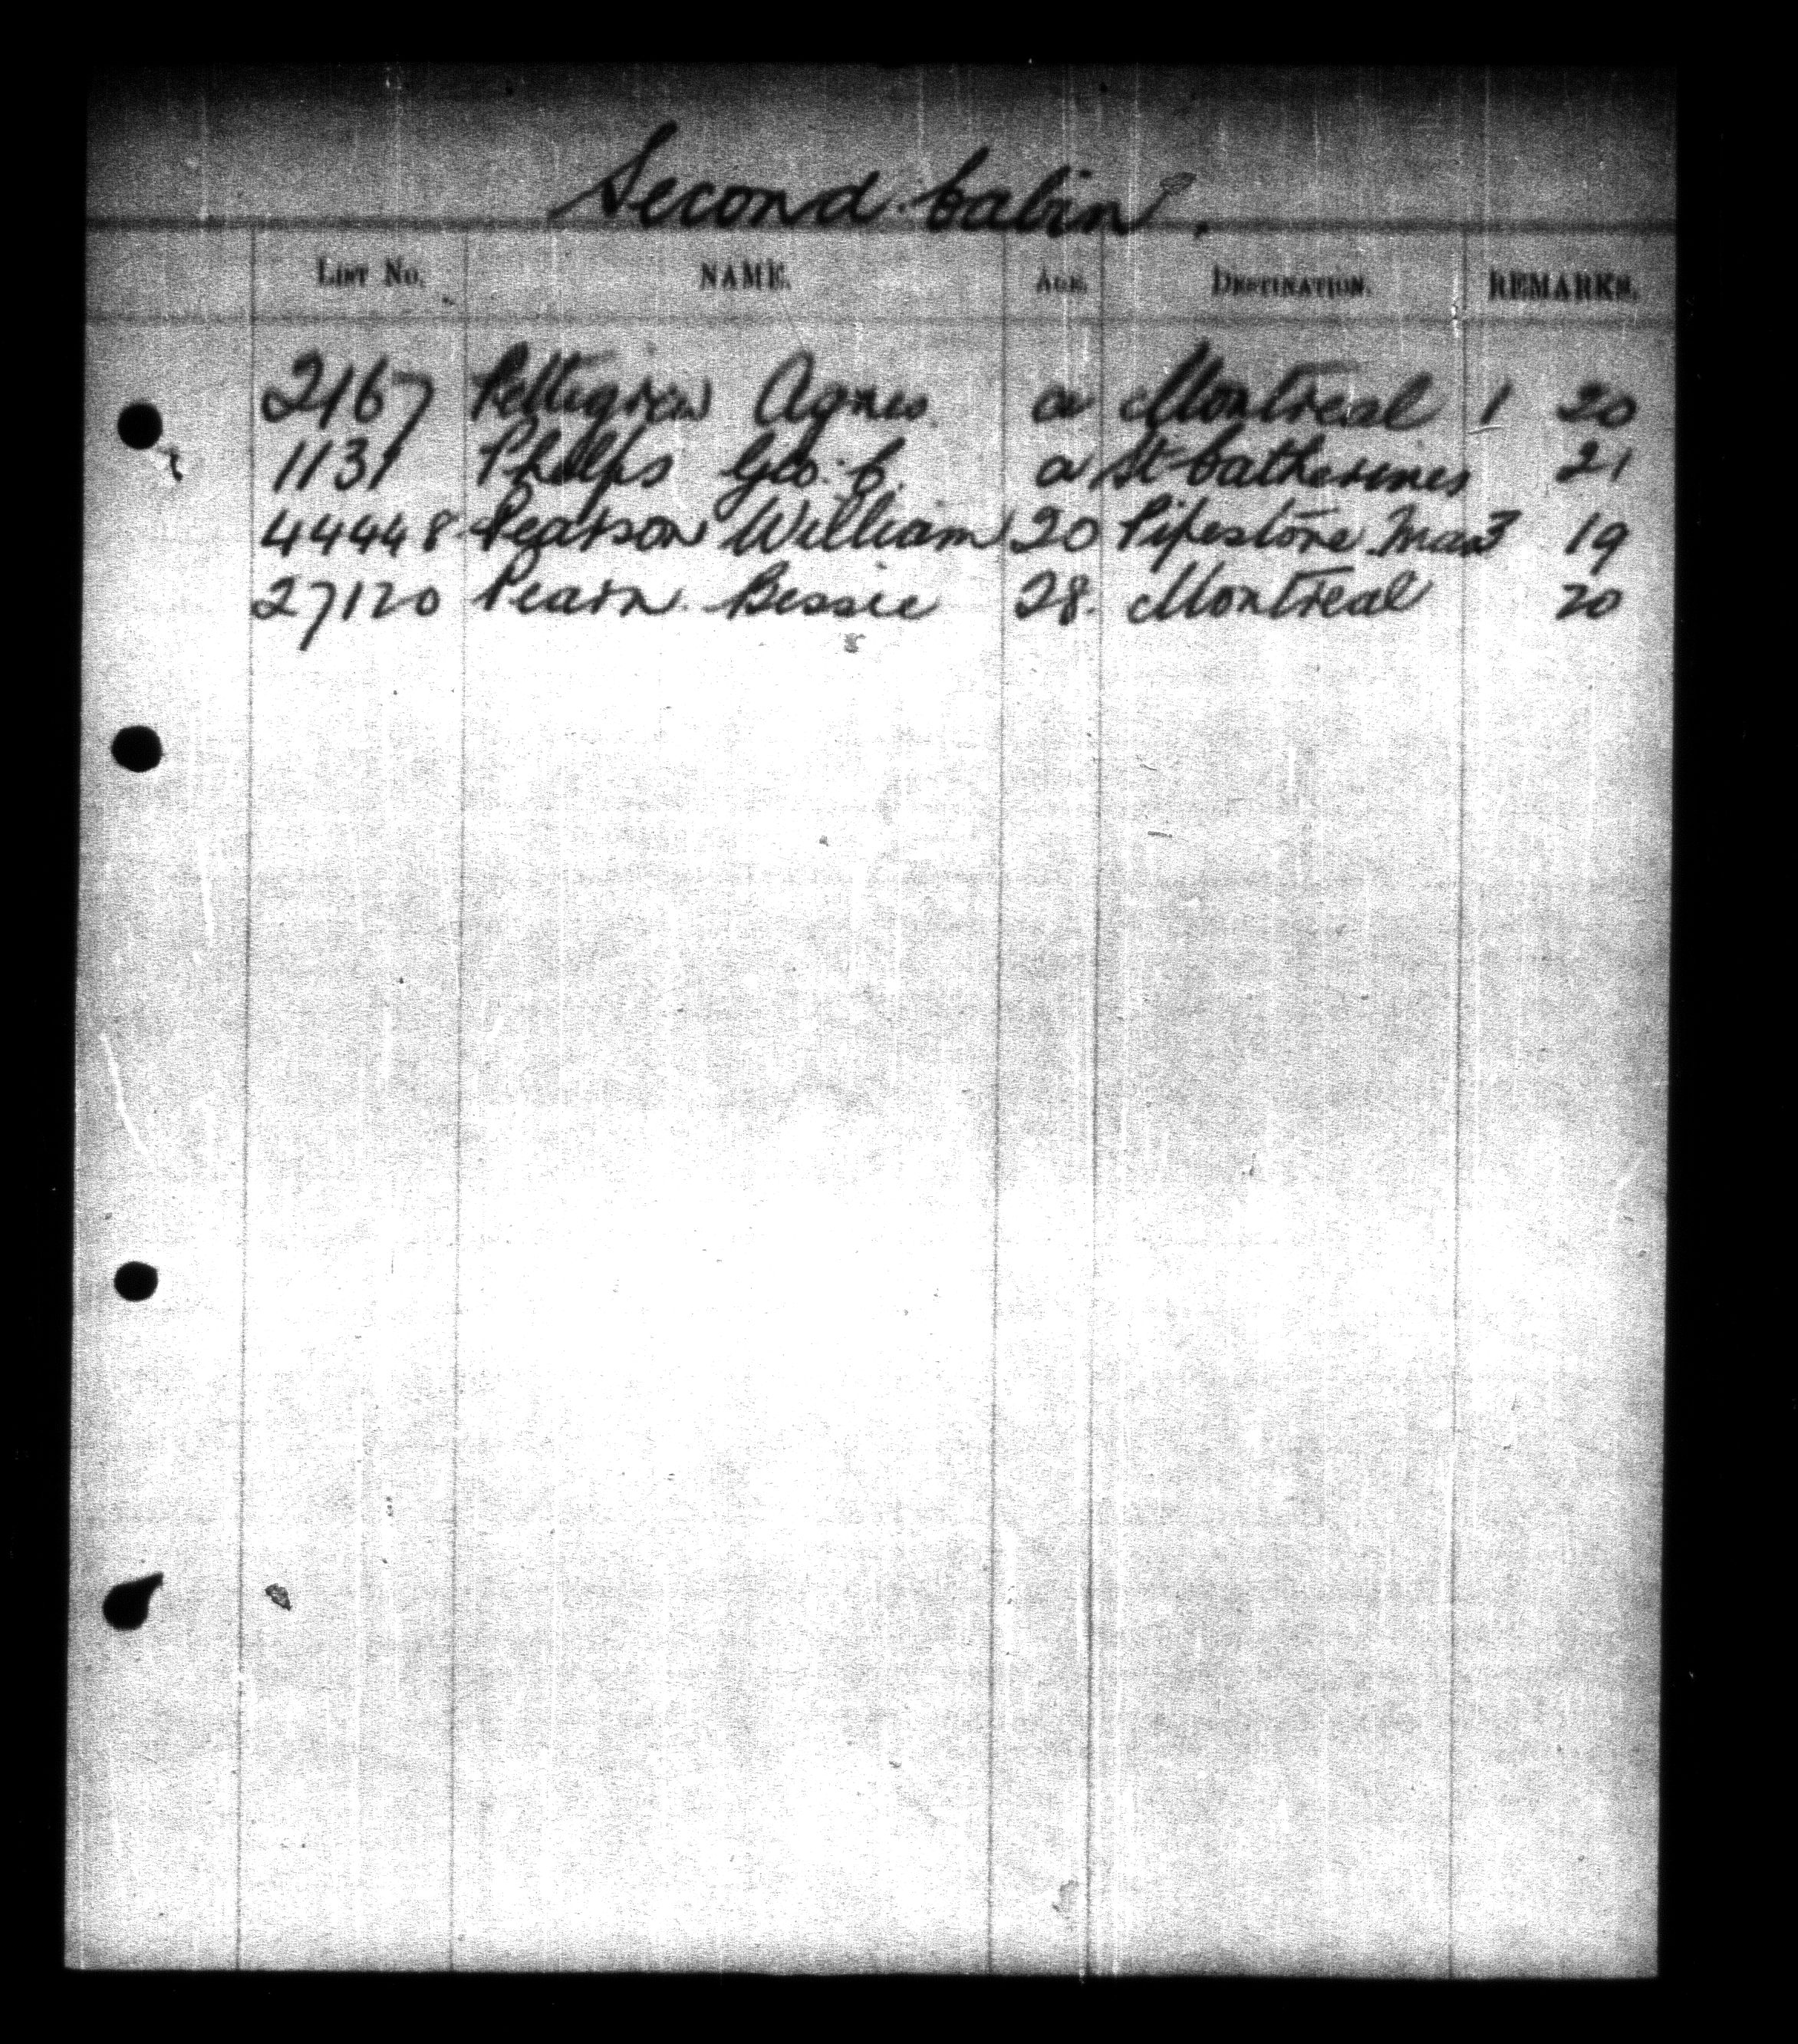 Second Cabin.
LIST NO. NAME. AGE. DESTINATION. REMARKS.
2167 Pettigrew Agnes a Montreal 1 20
1131 Phelps Geo. C. a St Catherines 21
44448 Pearson William 20 Pipestone Man 3 19
27120 Pearn Bessie 28. Montreal 20